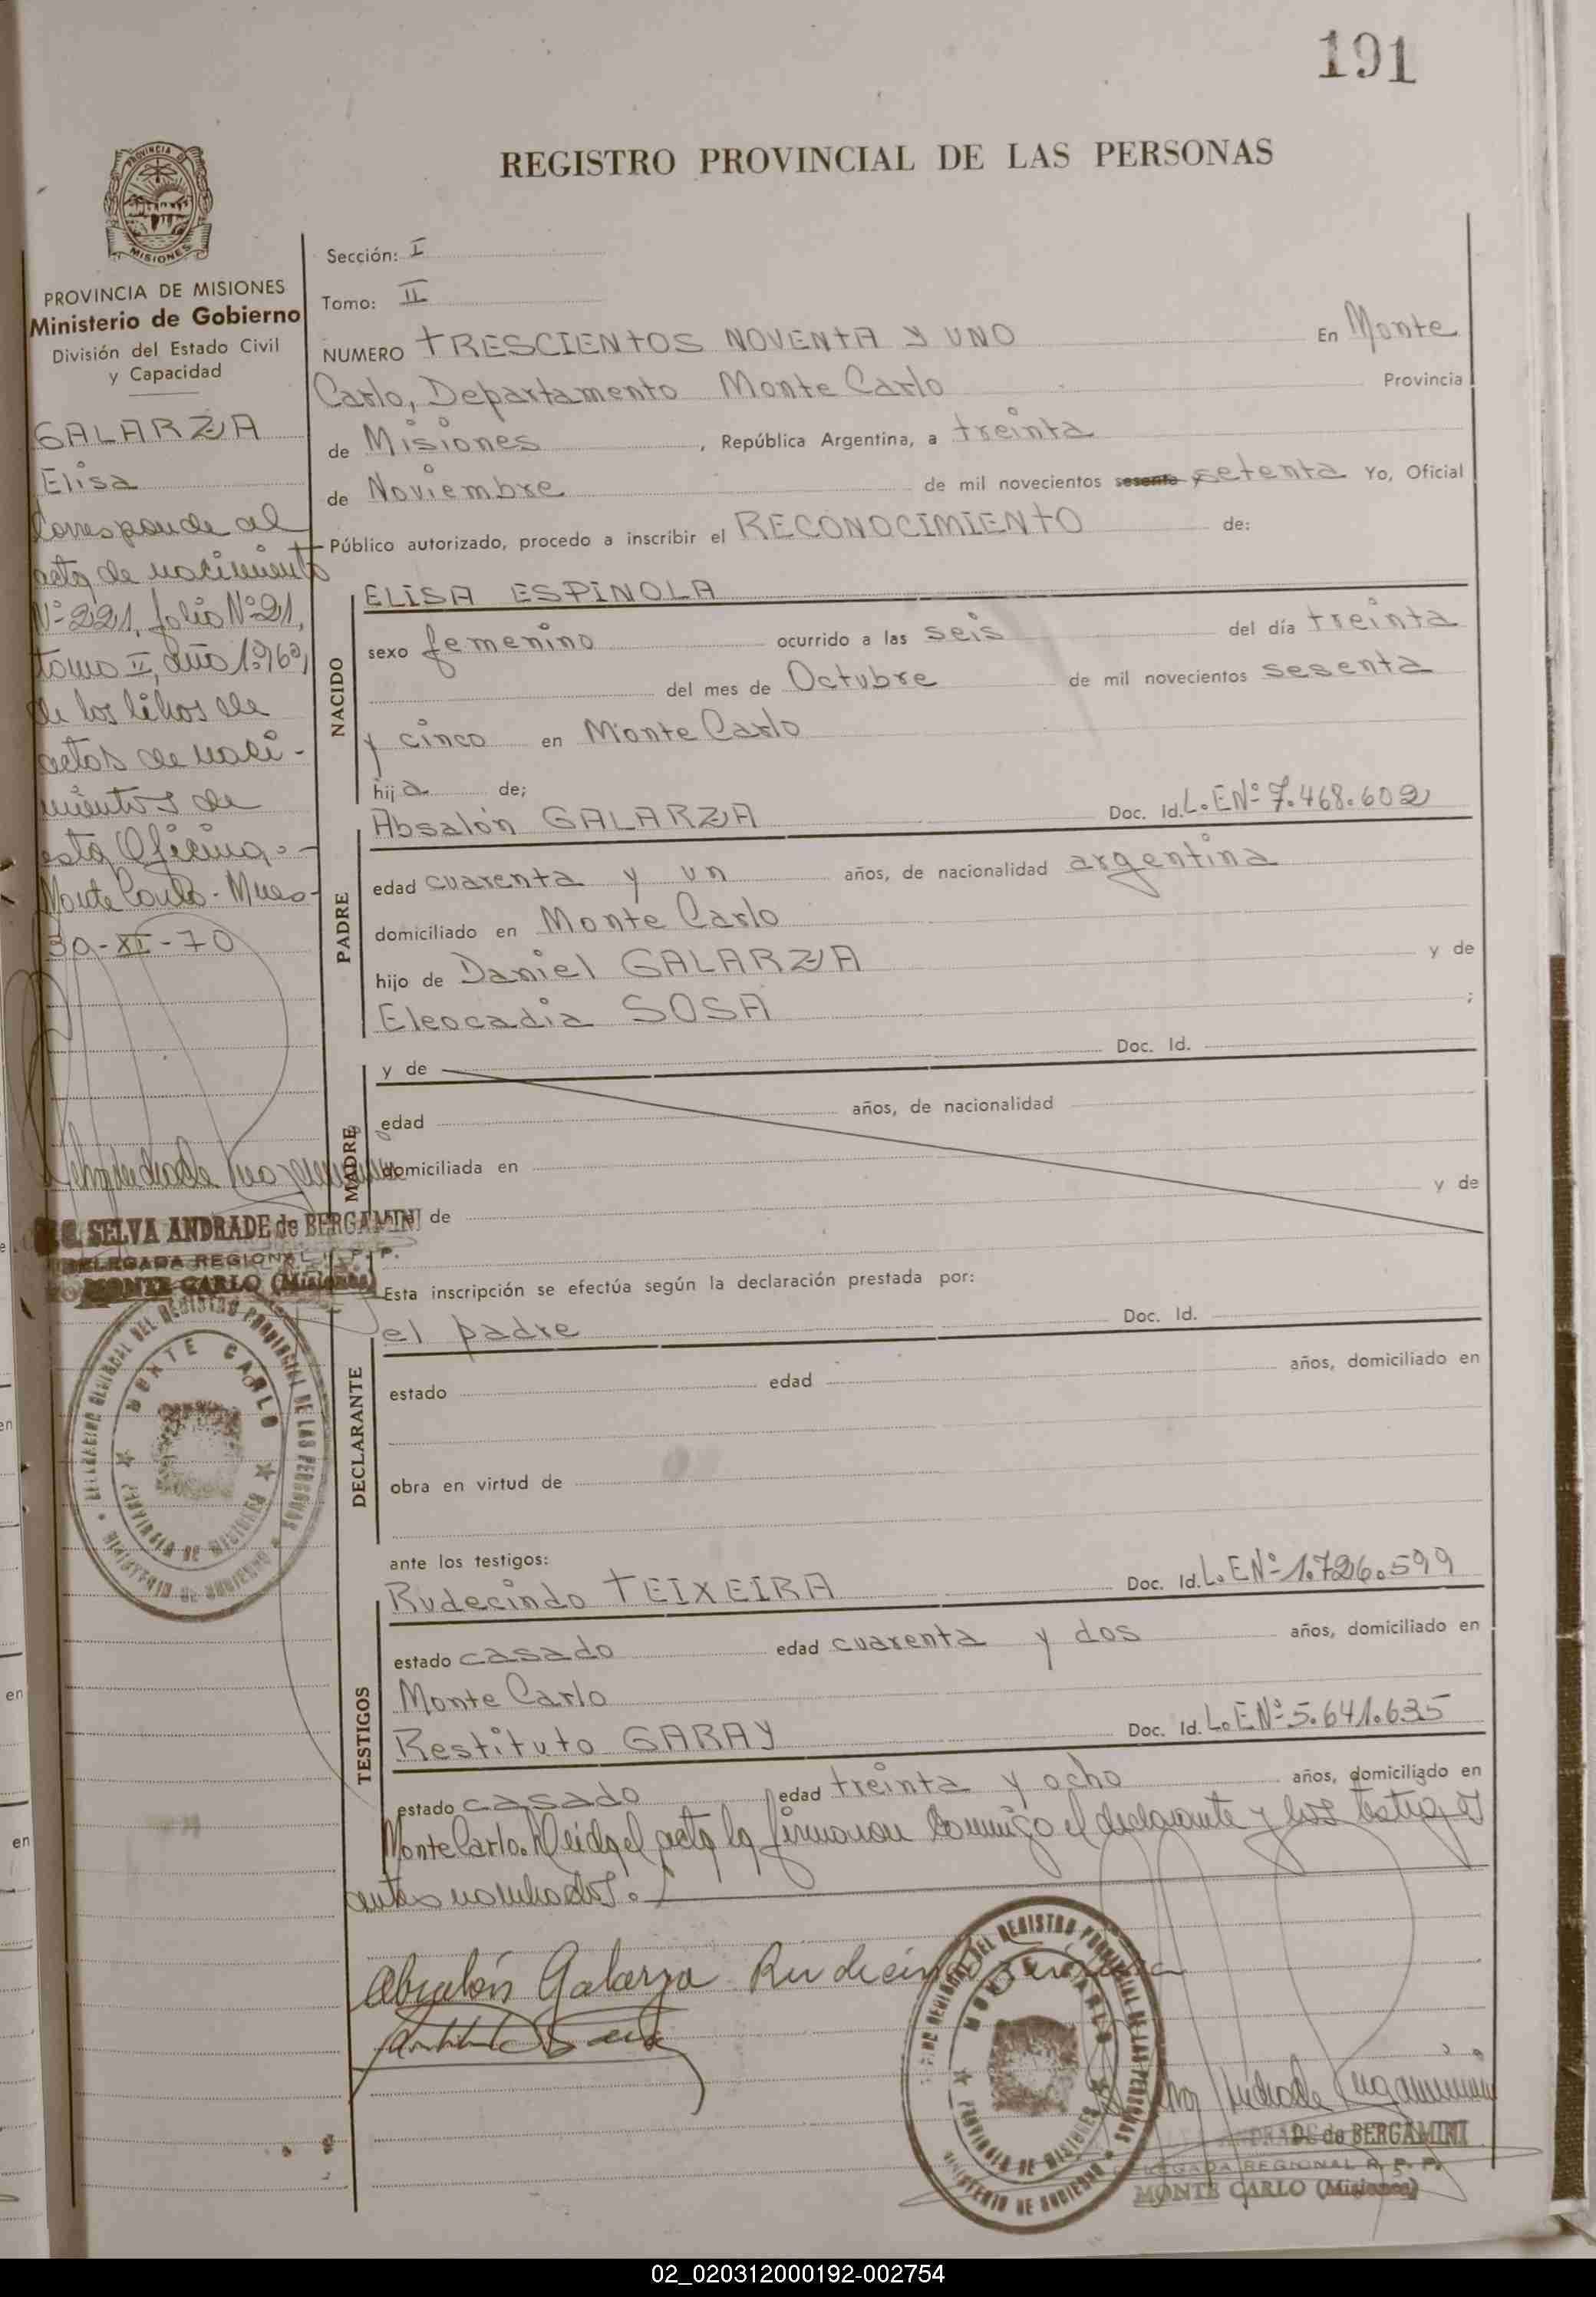 191
REGISTRO PROVINCIAL DE LAS PERSONAS
PROVINCIA DE
MISIONES
PROVINCIA DE MISIONES
Ministerio de Gobierno
División del Estado Civil
y Capacidad
GALARZA
Elisa
Corresponde al
acta de nacimiento
Nº 221, folio Nº 21,
tomo II, año
de los libros de
actas de naci-
mientos de
esta Oficina.-
Monte Carlo - Mnes-
30-XI-70
SELVA ANDRADE de BERGAMINI
DELEGADA REGIONAL R. P. P.
MONTE CARLO (Misiones)
DEL REGISTRO PROVINCIAL DE LAS PERSONAS
MONTE CARLO
PROVINCIA DE MISIONES
MINISTERIO DE GOBIERNO
Sección: I
Tomo: II
NUMERO TRESCIENTOS NOVENTA Y UNO En Monte
Carlo, Departamento Monte Carlo Provincia
de Misiones, República Argentina, a treinta
de Noviembre de mil novecientos sesenta setenta Yo, Oficial
Público autorizado, procedo a inscribir el RECONOCIMIENTO de:
NACIDO
ELISA ESPINOLA
sexo femenino ocurrido a las seis del día treinta
del mes de Octubre de mil novecientos sesenta
y cinco en Monte Carlo
hija de;
PADRE
Absalón GALARZA Doc. Id. L.E Nº 7.468.602
edad cuarenta y un años, de nacionalidad argentina
domiciliado en Monte Carlo
hijo de Daniel GALARZA y de
Eleocadia SOSA ;
MADRE
y de Doc. Id.
edad años, de nacionalidad
domiciliada en
de y de
Esta inscripción se efectúa según la declaración prestada por:
DECLARANTE
el padre Doc. Id.
estado edad años, domiciliado en
obra en virtud de
ante los testigos:
TESTIGOS
Rudecindo TEIXEIRA Doc. Id. L.E Nº 1.726.599
estado casado edad cuarenta y dos años, domiciliado en
Monte Carlo
Restituto GARAY Doc. Id. L.E Nº 5.641.635
estado casado edad treinta y ocho años, domiciliado en
Monte Carlo. Leida el acta la firmaron conmigo el declarante y los testigos
antes nombrados.
Absalón Galarza Rudecindo
DEL REGISTRO PROVINCIAL DE LAS PERSONAS
MONTE CARLO
PROVINCIA DE MISIONES
MINISTERIO DE GOBIERNO
de BERGAMINI
DELEGADA REGIONAL R. P. P.
MONTE CARLO (Misiones)
02_020312000192-002754